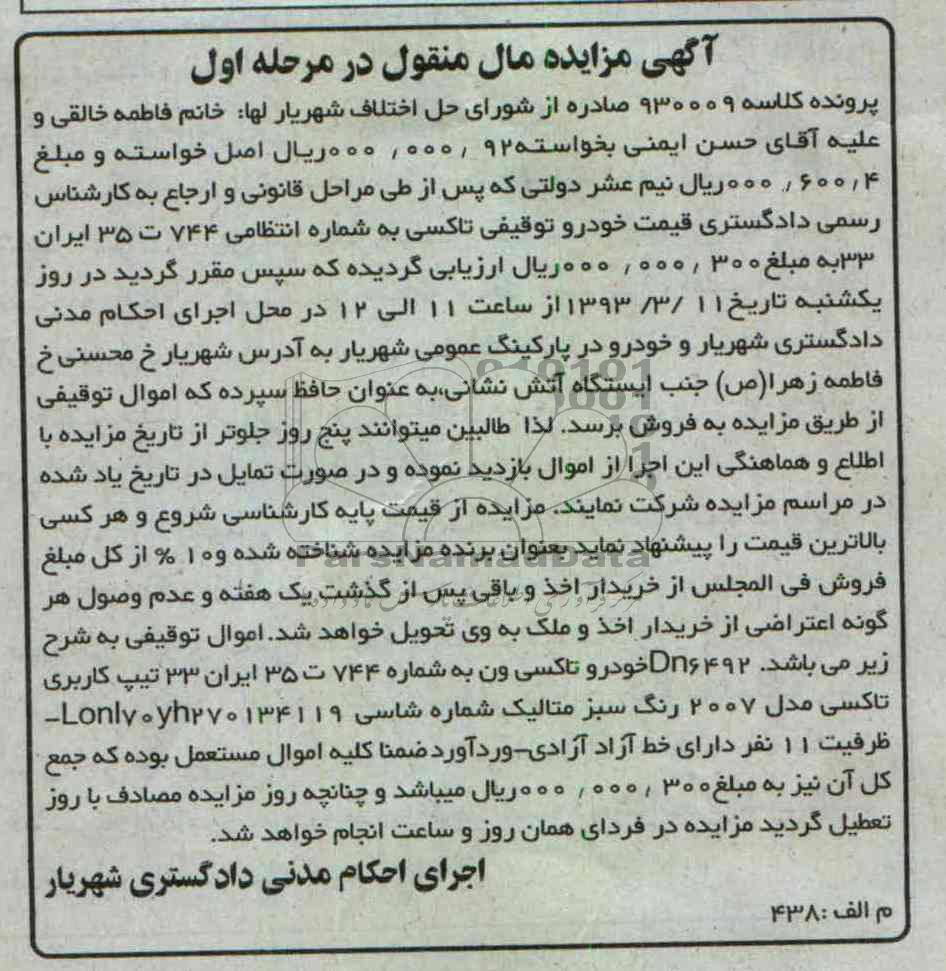 آگهی مزایده مال منقول در مرحله اول
پرونده کلاسه ۹۳۰۰۰۹ صادره از شورای حل اختلاف شهریار لها: خانم فاطمه خالقی و
علیه آقای حسن ایمنی بخواسته۹۲ ,۰۰۰, ۰۰۰ریال اصل خواسته و مبلغ
۶۰۰,۴ , ۰۰۰ریال نیم عشر دولتی که پس از طی مراحل قانونی و ارجاع به کارشناس
رسمی دادگستری قیمت خودرو توقیفی تاکسی به شماره انتظامی ۷۴۴ ت ۳۵ ایران
۳۳به مبلغ۳۰۰ ,۰۰۰, ۰۰۰ریال ارزیابی گردیده که سپس مقرر گردید در روز
یکشنبه تاریخ۱۱ /۳/ ۱۳۹۳از ساعت ۱۱ الی ۱۲ در محل اجرای احکام مدنی
دادگستری شهریار و خودرو در پارکینگ عمومی شهریار به آدرس شهریار خ محسنی خ
فاطمه زهرا(ص) جنب ایستگاه آتش نشانی،به عنوان حافظ سپرده که اموال توقیفی
از طریق مزایده به فروش برسد. لذا طالبین میتوانند پنج روز جلوتر از تاریخ مزایده با
اطلاع و هماهنگی این اجرا از اموال بازدید نموده و در صورت تمایل در تاریخ یاد شده
در مراسم مزایده شرکت نمایند. مزایده از قیمت پایه کارشناسی شروع و هر کسی
بالاترین قیمت را پیشنهاد نماید بعنوان برنده مزایده شناخته شده و۱۰ % از کل مبلغ
ParsNamadData
فروش فی المجلس از خریدار اخذ و باقی پس از گذشت یک هفته و عدم وصول هر
گونه اعتراضی از خریدار اخذ و ملک به وی تحویل خواهد شد. اموال توقیفی به شرح
زیر می باشد. Dn۶۴۹۲خودرو تاکسی ون به شماره ۷۴۴ ت ۳۵ ایران ۳۳ تیپ کاربری
تاکسی مدل ۲۰۰۷ رنگ سبز متالیک شماره شاسی Lonl۷۰yh۲۷۰۱۳۴۱۱۹–
ظرفیت ۱۱ نفر دارای خط آزاد آزادی–وردآورد ضمنا کلیه اموال مستعمل بوده که جمع
کل آن نیز به مبلغ۳۰۰ ,۰۰۰, ۰۰۰ریال میباشد و چنانچه روز مزایده مصادف با روز
تعطیل گردید مزایده در فردای همان روز و ساعت انجام خواهد شد.
اجرای احکام مدنی دادگستری شهریار
م الف :۴۳۸